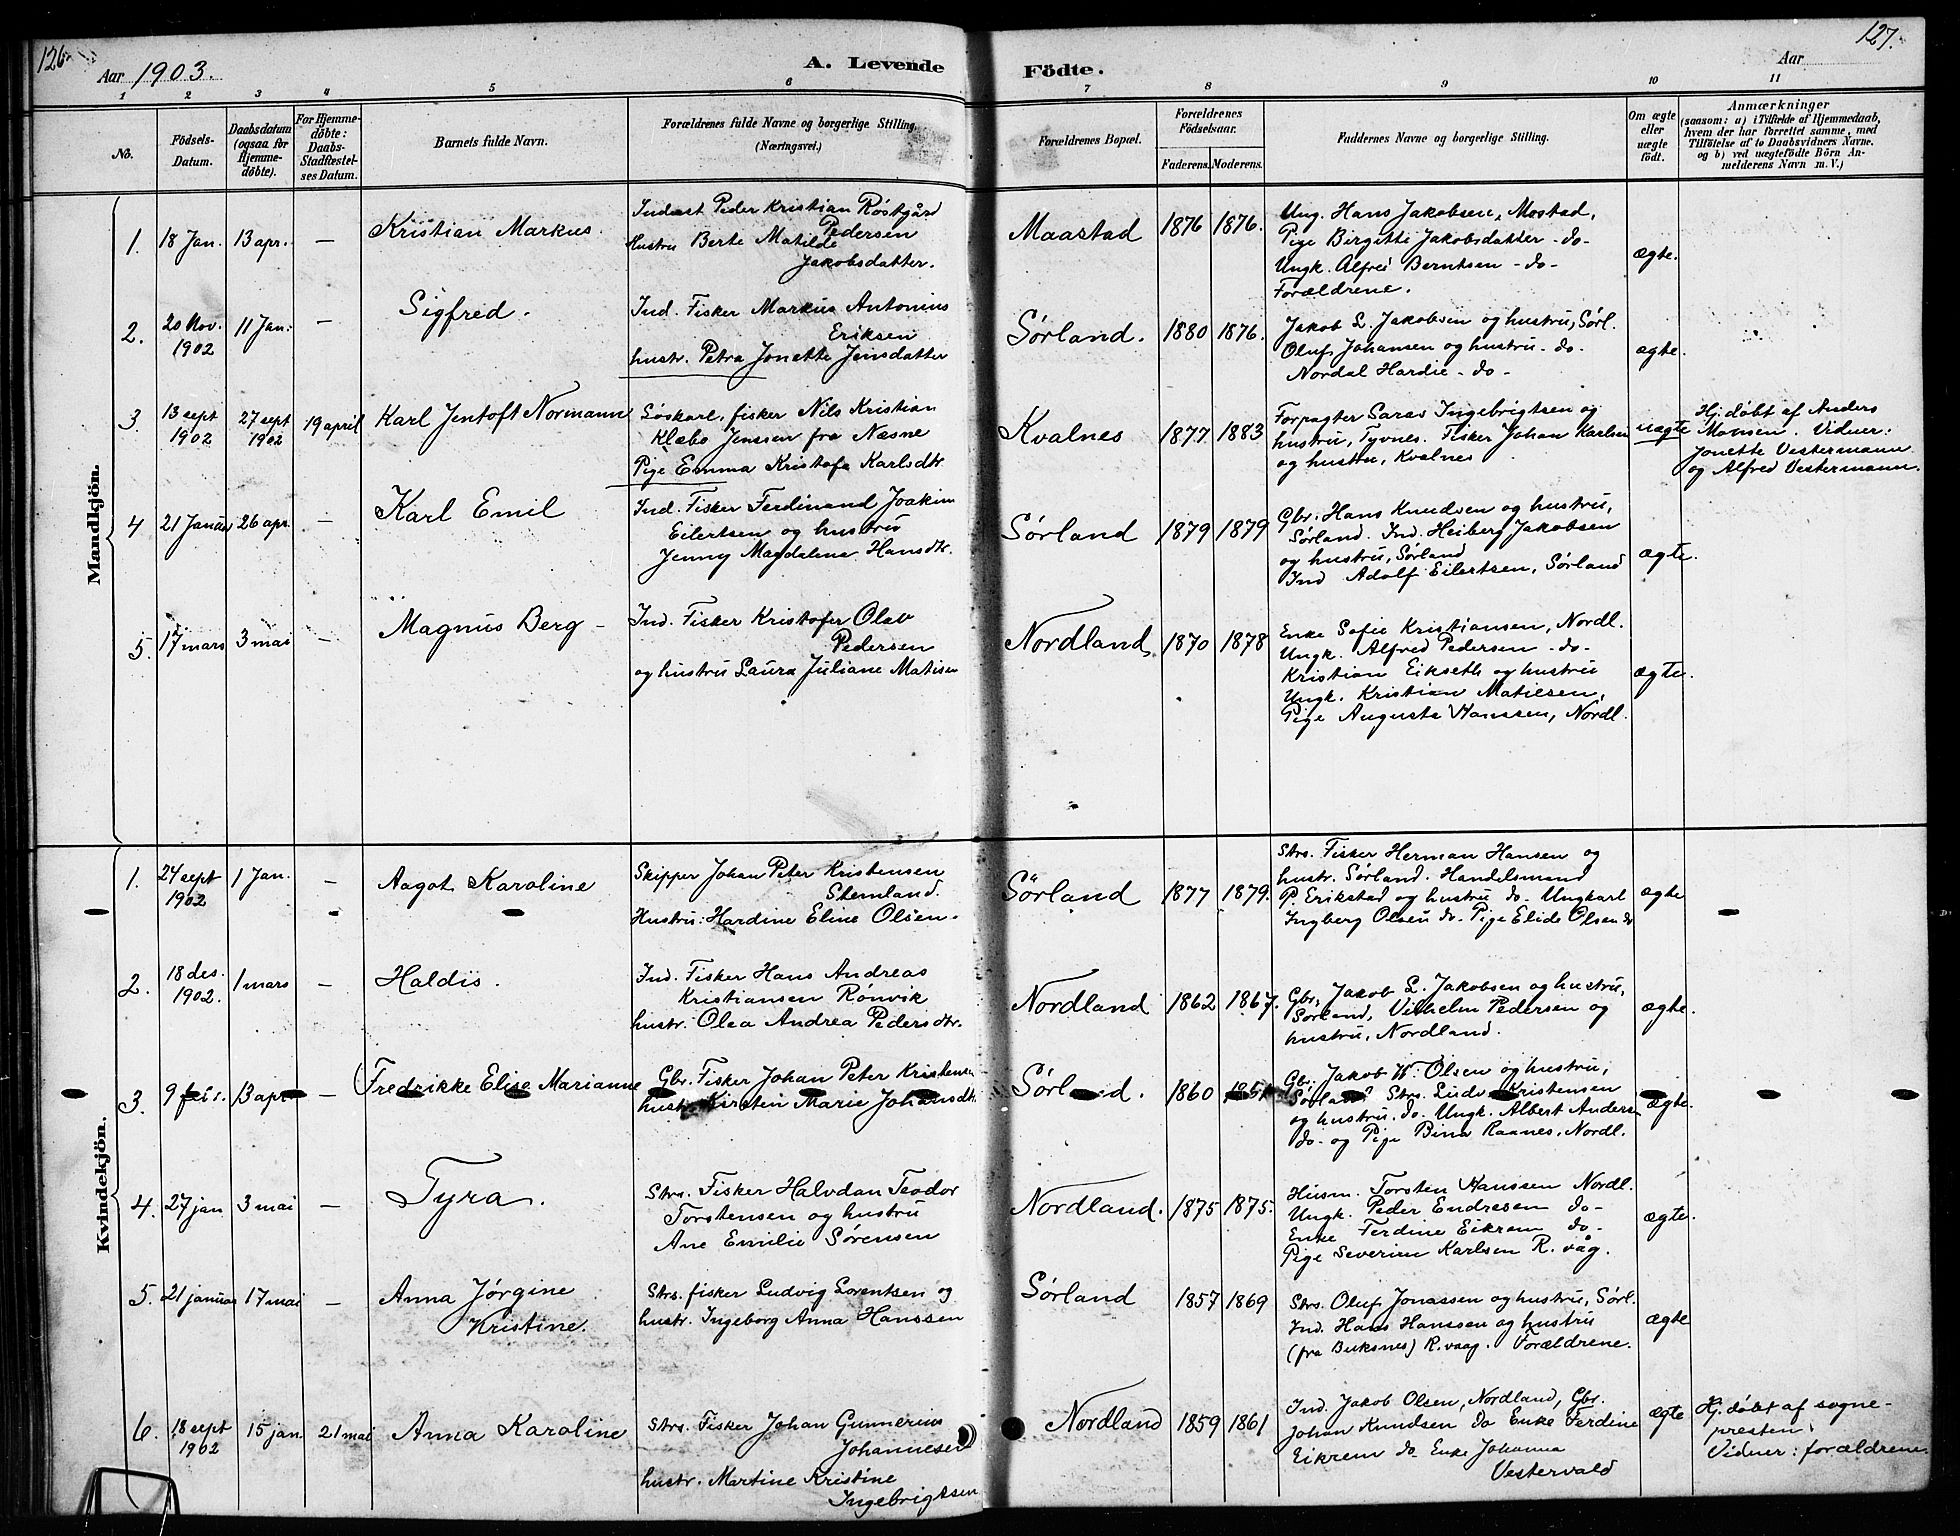 126
127.
Aar 1903.
A. Levende
Födte.
Aar
1 2 3 4 5 6 7 8 9 10 11
No.
Födsels-Datum.
Daabsdatum (ogsaa för Hjemme-döbte).
For Hjemme-döbte: Daabs-Stadfæstel-ses Datum.
Barnets fulde Navn.
Forældrenes fulde Navne og borgerlige Stilling.
(Næringsvei.)
Forældrenes Bopæl.
Forældrenes Födselsaar.
Faderens. Moderens.
Faddernes Navne og borgerlige Stilling.
Om ægte eller uægte födt.
Anmærkninger
(saasom: a) i Tilfælde af Hjemmedaab,
hvem der har forrettet samme, med
Tilföielse af to Daabsvidners Navne.
og b) ved uægtefödte Börn An-
melderens Navn m. V.)
Mandkjön.
1. 18 Jan. 13 apr. — Kristian Markus.
Inderst Peder Kristian Röstgård
Pedersen
Hustru Berte Matilde
Jakobsdatter.
Maastad 1876 1876.
Ung. Hans Jakobsen, Mostad,
Pige Birgitte Jakobsdatter -do-
Ungk. Alfred Berntsen -do-
Forældrene.
ægte.
2. 20 Nov. 1902 11 Jan. — Sigfred.
Ind. Fisker Markus Antonius
Eriksen
hustr. Petra Jonette Jensdatter
Sørland. 1880 1876.
Jakob L. Jakobsen og hustru, Sørl.
Oluf Johansen og hustru -do-
Nordal Hardie -do-
ægte.
3. 13 sept 1902 27 sept 1902 19 april Karl Jentoft Normann
Løskarl, fisker Nils Kristian
Klæbo Jenssen fra Næsne
Pige Emma Kristofa Karlsdtr.
Kvalnes 1877 1883
Forpagter Saras Ingebrigtsen og
hustru, Tyvnes. Fisker Johan Karlsen
og hustru, Kvalnes
uægte
Hj. döbt af Anders
Monsen. Vidner:
Jonette Vestermann
og Alfred Vestermann.
4 21 Januar 26 apr. — Karl Emil
Ind. Fisker Ferdinand Joakim
Eilertsen og hustru
Jenny Magdalena Hansdtr.
Sørland 1879 1879
Gbr. Hans Knudsen og hustru,
Sørland. Ind. Heiberg Jakobsen
og hustru, Sørland
Ind Adolf Eilertsen, Sørland
ægte.
5. 17 mars 3 mai — Magnus Berg
Ind. Fisker Kristofer Olav
Pedersen
og hustru Laura Juliane Matisen
Nordland, 1870 1878
Enke Sofie Kristiansen, Nordl.
Ungk. Alfred Pedersen -do-
Kristian Eikseth og hustru
Ungk. Kristian Matiesen,
Pige Augusta Hanssen, Nordl.
ægte.
Kvindekjön.
1. 24 sept 1902 1 Jan. — Aagot Karoline
Skipper Johan Peter Kristensen
Stemland.
Hustru: Hardine Eline Olsen.
Sørland 1877 1879.
Strs. Fisker Herman Hansen og
hustr. Sørland. Handelsmand
P. Erikstad og hustru do. Ungkarl
Ingberg Olsen do. Pige Elide Olsen do
ægte
2. 18 des. 1902. 1 mars — Haldis.
Ind. Fisker Hans Andreas
Kristiansen Rønvik
hustr. Olea Andrea Pedersdtr.
Nordland 1862 1867.
Gbr. Jakob L. Jakobsen og hustru,
Sørland, Vilhelm Pedersen og
hustru, Nordland.
ægte.
3. 9 13 apr — Fredrikke Elise Marianne
Gbr. Fisker Johan Peter Kristensen
hustr. Kirsten Marie Johansdtr.
Sørland. 1860
Gbr. Jakob Olsen og hustru,
Sørland Strs. Ludv. Kristensen
og hustru. do. Ungk. Albert Anders
do- og Pige Bina Raanes, Nordl.
ægte.
4. 27 jan 3 mai — Tyra.
Strs. Fisker Halvdan Teodor
Torstensen og hustru
Ane Emilie Sørensen
Nordland. 1875 1875.
Husm. Torsten Hanssen Nordl.
Ungk. Peder Endresen do-
Enke Ferdine Eikrem do-
Pige Severine Karlsen R. våg.
ægte.
5. 21 januar 17 mai — Anna Jørgine
Kristine.
Strs. fisker Ludvig Lorentsen og
hustr. Ingeborg Anna Hanssen
Sørland 1857 1869
Strs. Oluf Jonassen og hustru, Sørl.
Ind. Hans Hanssen og hustru
(fra Buksnes) R. vaag. Forældrene.
ægte
6. 18 sept 1902 15 jan. 21 mai Anna Karoline
Strs. Fisker Johan Gunnerius
Johannesen
hustr. Martine Kristine
Ingebrigtsen
Nordland 1859 1861
Ind. Jakob Olsen, Nordland, Gbr.
Johan Knudsen do Enke Ferdine
Eikrem do Enke Johanna
Vestervald
ægte
Hj. döbt af sogne-
presten.
Vidner: forældrene